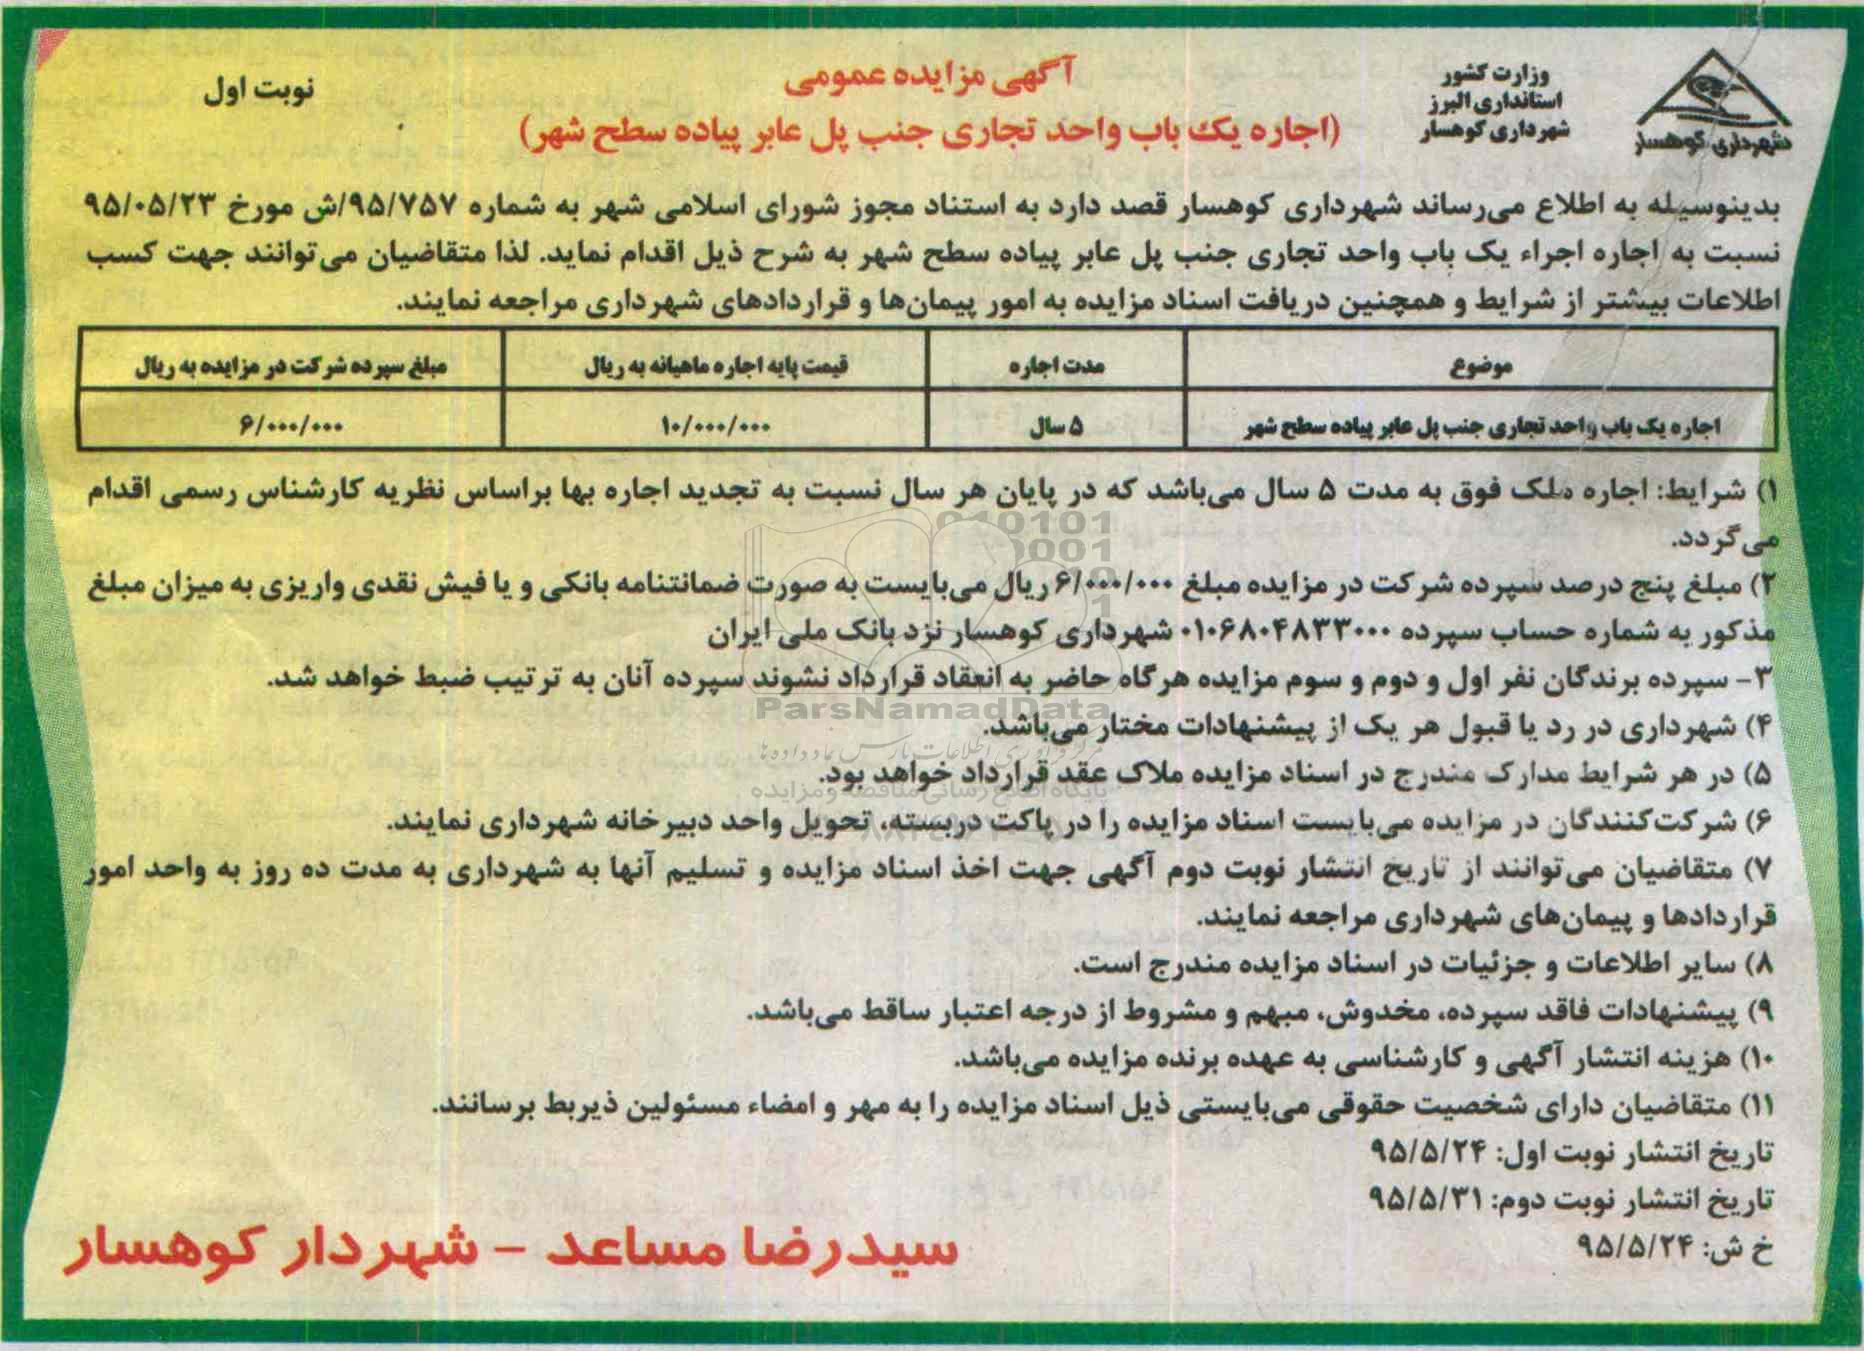 شهرداری کوهسار
وزارت کشور
استانداری البرز
شهرداری کوهسار
آگهی مزایده عمومی
(اجاره یک باب واحد تجاری جنب پل عابر پیاده سطح شهر)
نوبت اول
بدینوسیله به اطلاع می‌رساند شهرداری کوهسار قصد دارد به استناد مجوز شورای اسلامی شهر به شماره ۹۵/۷۵۷/ش مورخ ۹۵/۰۵/۲۳
نسبت به اجاره اجراء یک باب واحد تجاری جنب پل عابر پیاده سطح شهر به شرح ذیل اقدام نماید. لذا متقاضیان می‌توانند جهت کسب
اطلاعات بیشتر از شرایط و همچنین دریافت اسناد مزایده به امور پیمان‌ها و قراردادهای شهرداری مراجعه نمایند.
موضوع مدت اجاره قیمت پایه اجاره ماهیانه به ریال مبلغ سپرده شرکت در مزایده به ریال
اجاره یک باب واحد تجاری جنب پل عابر پیاده سطح شهر ۵ سال ۱۰/۰۰۰/۰۰۰ ۶/۰۰۰/۰۰۰
۱) شرایط: اجاره ملک فوق به مدت ۵ سال می‌باشد که در پایان هر سال نسبت به تجدید اجاره بها براساس نظریه کارشناس رسمی اقدام
می‌گردد.
۲) مبلغ پنج درصد سپرده شرکت در مزایده مبلغ ۶/۰۰۰/۰۰۰ ریال می‌بایست به صورت ضمانتنامه بانکی و یا فیش نقدی واریزی به میزان مبلغ
مذکور به شماره حساب سپرده ۰۱۰۶۸۰۴۸۳۳۰۰۰ شهرداری کوهسار نزد بانک ملی ایران
۳- سپرده برندگان نفر اول و دوم و سوم مزایده هرگاه حاضر به انعقاد قرارداد نشوند سپرده آنان به ترتیب ضبط خواهد شد.
۴) شهرداری در رد یا قبول هر یک از پیشنهادات مختار می‌باشد.
۵) در هر شرایط مدارک مندرج در اسناد مزایده ملاک عقد قرارداد خواهد بود.
۶) شرکت‌کنندگان در مزایده می‌بایست اسناد مزایده را در پاکت دربسته، تحویل واحد دبیرخانه شهرداری نمایند.
۷) متقاضیان می‌توانند از تاریخ انتشار نوبت دوم آگهی جهت اخذ اسناد مزایده و تسلیم آنها به شهرداری به مدت ده روز به واحد امور
قراردادها و پیمان‌های شهرداری مراجعه نمایند.
۸) سایر اطلاعات و جزئیات در اسناد مزایده مندرج است.
۹) پیشنهادات فاقد سپرده، مخدوش، مبهم و مشروط از درجه اعتبار ساقط می‌باشد.
۱۰) هزینه انتشار آگهی و کارشناسی به عهده برنده مزایده می‌باشد.
۱۱) متقاضیان دارای شخصیت حقوقی می‌بایستی ذیل اسناد مزایده را به مهر و امضاء مسئولین ذیربط برسانند.
تاریخ انتشار نوبت اول: ۹۵/۵/۲۴
تاریخ انتشار نوبت دوم: ۹۵/۵/۳۱
خ ش: ۹۵/۵/۲۴
سیدرضا مساعد – شهردار کوهسار
ParsNamadData
پایگاه اطلاع رسانی مناقصه و مزایده